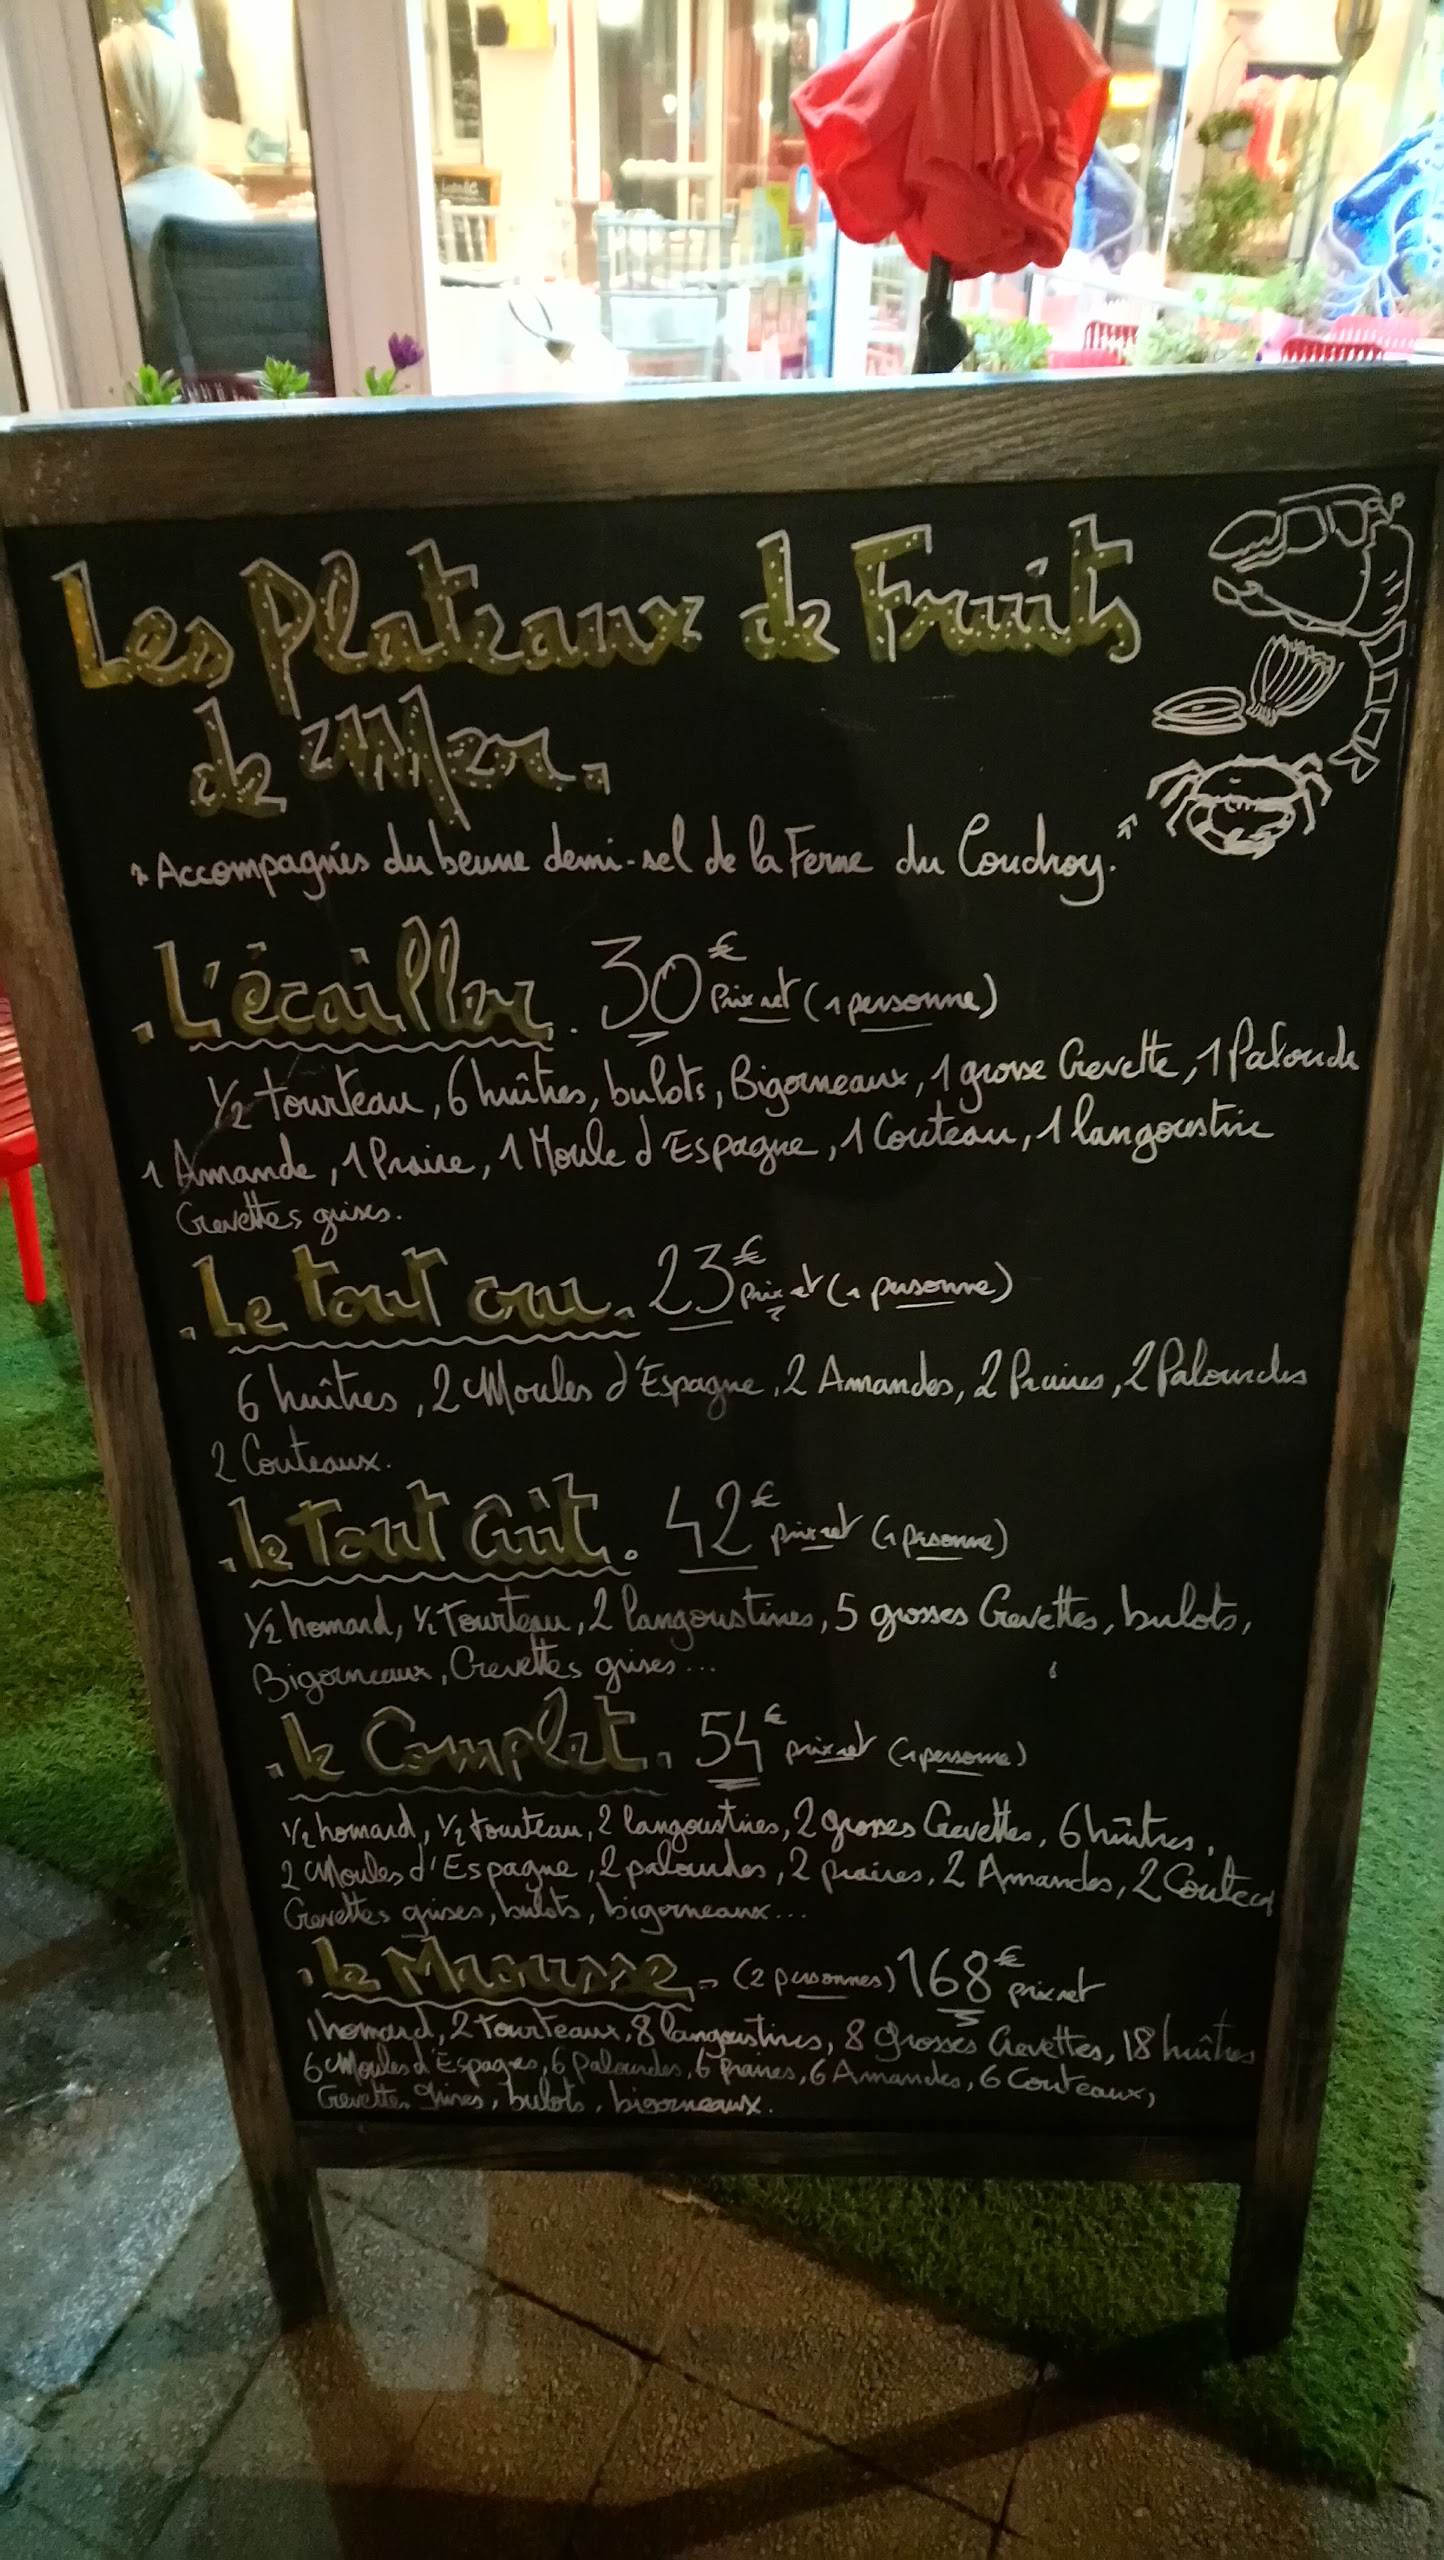 Les Plateaux de Fruits
de Mer.
"Accompagnés du beurre demi-sel de la Ferme du Coudroy."
. L'écailler . 30€ prix net (1 personne)
1/2 tourteau, 6 huîtres, bulots, Bigorneaux, 1 grosse Crevette, 1 Palourde
1 Amande, 1 Praire, 1 Moule d'Espagne, 1 Couteau, 1 langoustine
Crevettes grises.
. Le tout cru. 23€ prix net (1 personne)
6 huîtres, 2 Moules d'Espagne, 2 Amandes, 2 Praires, 2 Palourdes
2 Couteaux.
. le Tout Cuit. 42€ prix net (1 personne)
1/2 homard, 1/2 Tourteau, 2 langoustines, 5 grosses Crevettes, bulots,
Bigorneaux, Crevettes grises...
. le Complet. 54€ prix net (1 personne)
1/2 homard, 1/2 tourteau, 2 langoustines, 2 grosses Crevettes, 6 huîtres,
2 Moules d'Espagne, 2 palourdes, 2 praires, 2 Amandes, 2 Couteau
Crevettes grises, bulots, bigorneaux...
. le Maousse. (2 personnes) 168€ prix net
1 homard, 2 tourteaux, 8 langoustines, 8 grosses Crevettes, 18 huîtres
6 Moules d'Espagnes, 6 Palourdes, 6 Praires, 6 Amandes, 6 Couteaux,
Crevettes grises, bulots, bigorneaux.